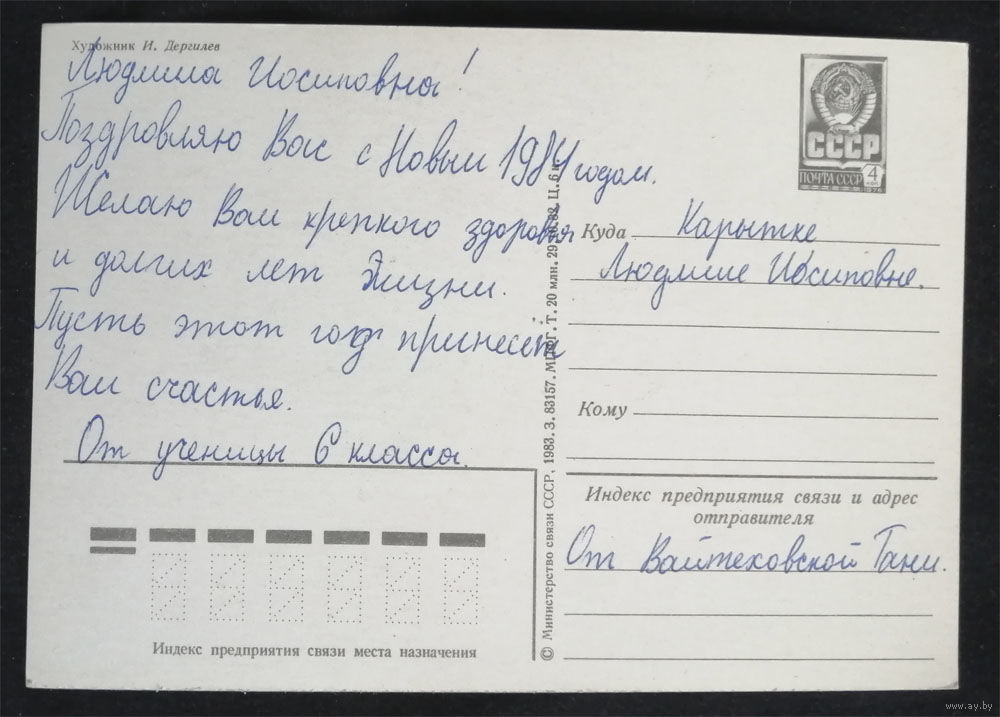 Художник И. Дергилев
Людмила Иосиповна!
Поздровляю Вас с Новым 1984 годом.
Желаю Вам крепкого здоровья
и долгих лет жизни.
Пусть этот год принесет
Вам счастья.
От ученицы 6 класса.
Индекс предприятия связи места назначения
© Министерство связи СССР, 1983. З. 83157. МПФГ. Т. 20 млн. 29.10.82. Ц. 6 к.
СССР
ПОЧТА СССР 4 коп
1976
Куда Карытке
Людмиле Иосиповне.
Кому
Индекс предприятия связи и адрес
отправителя
От Вайтеховской Тани.
www.ay.by